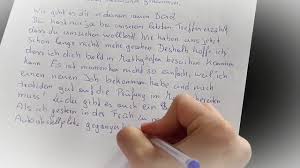 Wie geht es dir in deinem neuen Dorf
Du hast mir ja bei unserem letzten Treffen erzählt,
dass du umziehen wolltest. Wir haben uns jetzt
schon lange nicht mehr gesehen. Deshalb hoffe ich,
dass ich dich bald in besuchen kommen
kann. Es ist momentan nicht so einfach, weil ich
einen neuen Job bekommen habe und mich
trotzdem gut auf die Prüfung im vorbereiten
muss. Leider gibt es auch ein
Als ich gestern in der Früh zu m
Autoabstellplatz gegangen